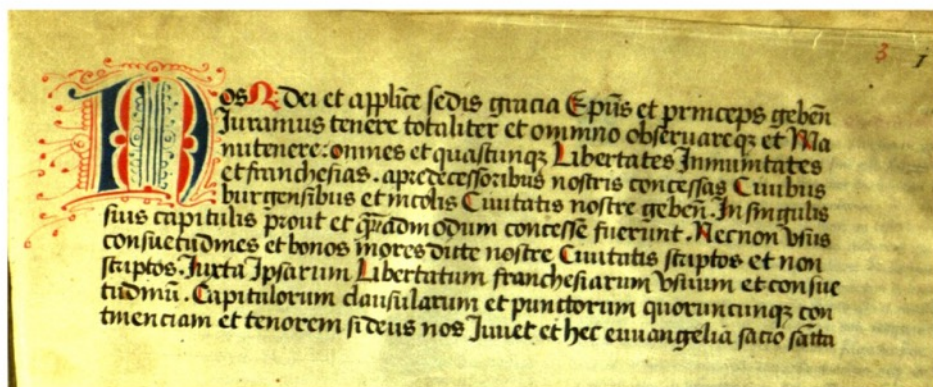 3 1
Nos N. Dei et applice sedis gracia Epūs et princeps gebeñ
Juramus tenere totaliter et omnino obseruareqꝫ et Ma
nutenere: omnes et quascunqꝫ Libertates Inmunitates
et franchesias. apredecessoribus nostris concessas Ciuibus
burgensibus et incolis Ciuitatis nostre gebeñ. In singulis
suis capitulis prout et qm̄admodum concesse fuerunt. Necnon vsus
consuetudines et bonos mores dicte nostre Ciuitatis scriptos et non
scriptos. Juxta Ipsarum Libertatum franchesiarum vsuum et consue
tudinū. Capitulorum clausularum et punctorum quorumcunqꝫ con
tinenciam et tenorem si deus nos Juuet et hec euuangelia sacro sācta